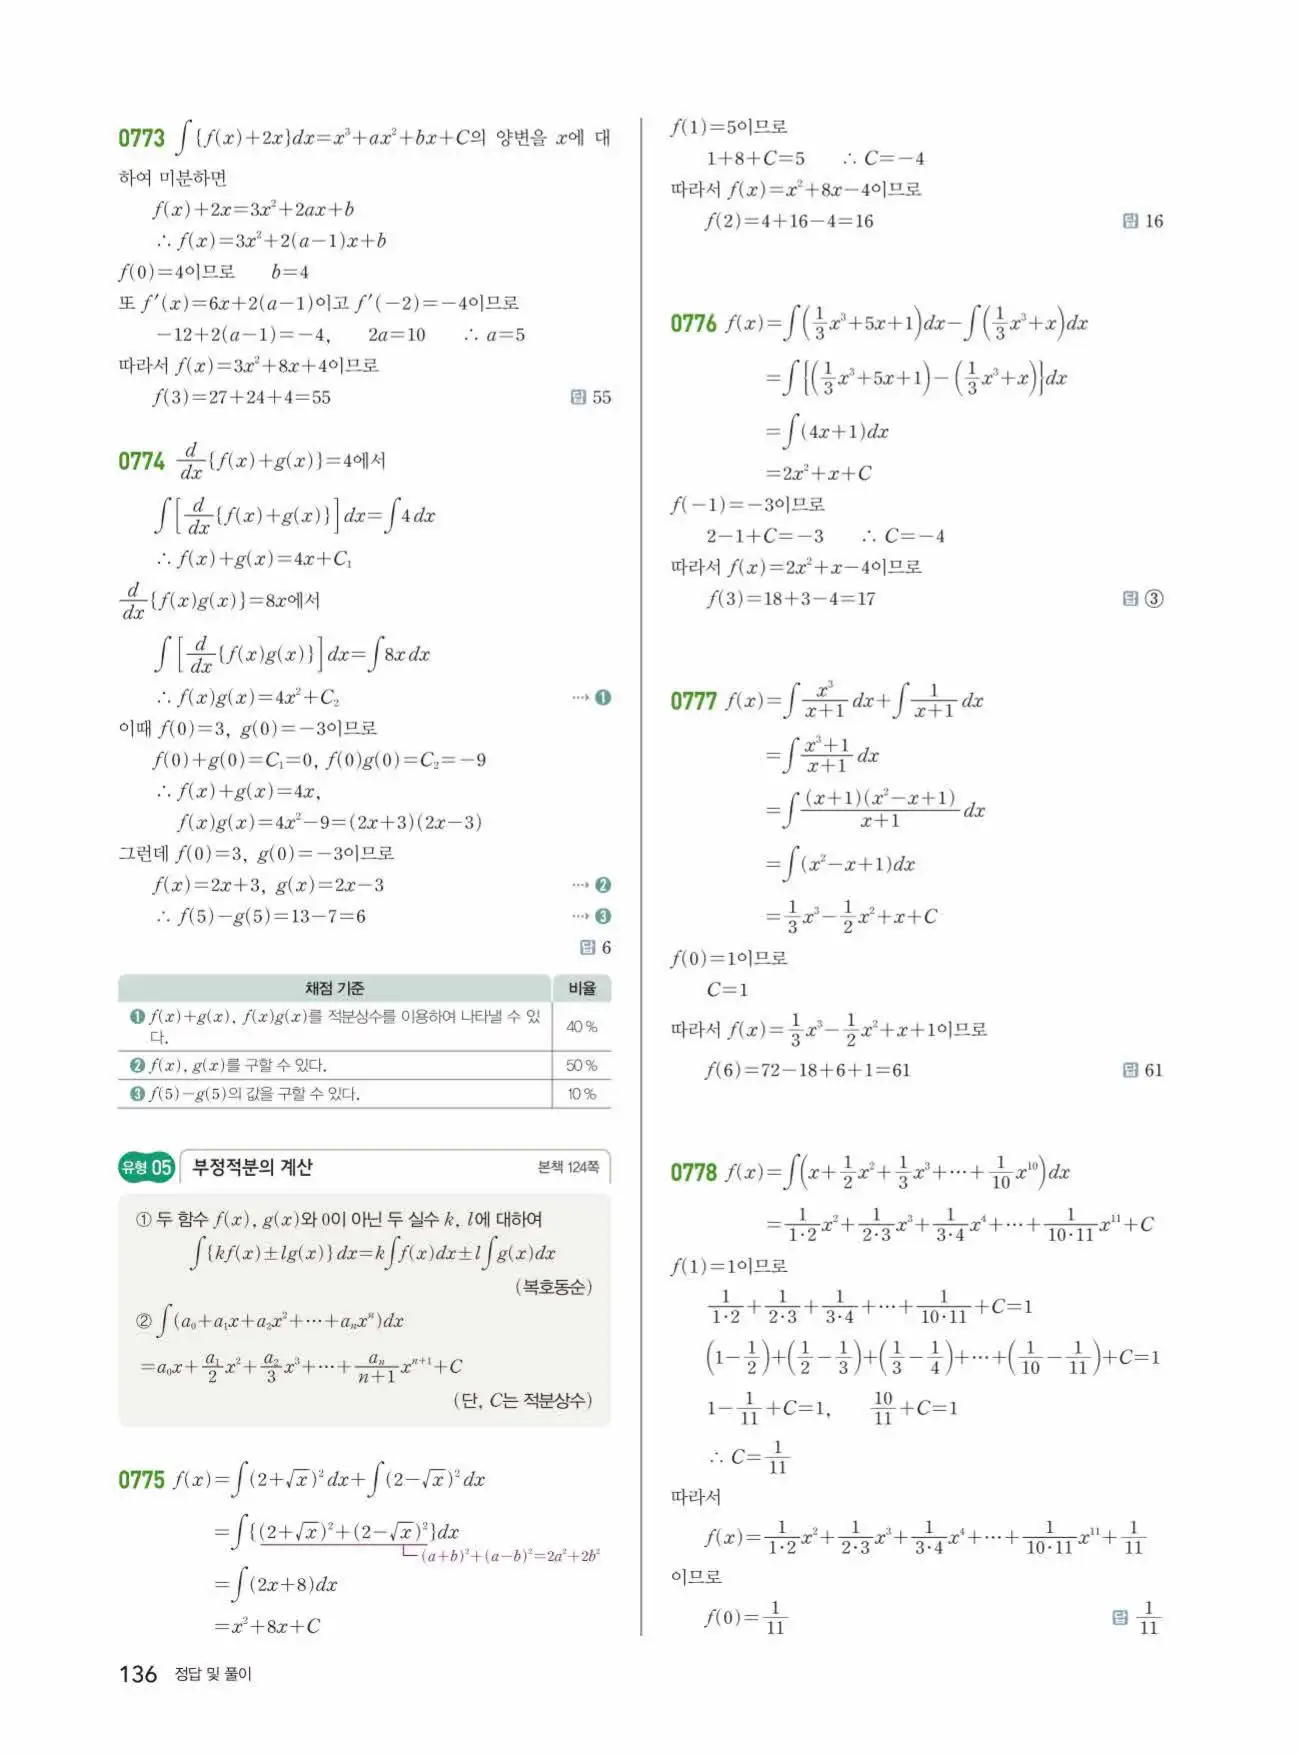 0773 ∫{f(x)+2x}dx=x³+ax²+bx+C의 양변을 x에 대
하여 미분하면
f(x)+2x=3x²+2ax+b
∴ f(x)=3x²+2(a−1)x+b
f(0)=4이므로 b=4
또 f′(x)=6x+2(a−1)이고 f′(−2)=−4이므로
−12+2(a−1)=−4, 2a=10 ∴ a=5
따라서 f(x)=3x²+8x+4이므로
f(3)=27+24+4=55 답 55
0774 d/dx{f(x)+g(x)}=4에서
∫[d/dx{f(x)+g(x)}]dx=∫4dx
∴ f(x)+g(x)=4x+C₁
d/dx{f(x)g(x)}=8x에서
∫[d/dx{f(x)g(x)}]dx=∫8xdx
∴ f(x)g(x)=4x²+C₂ ⋯→ ❶
이때 f(0)=3, g(0)=−3이므로
f(0)+g(0)=C₁=0, f(0)g(0)=C₂=−9
∴ f(x)+g(x)=4x,
f(x)g(x)=4x²−9=(2x+3)(2x−3)
그런데 f(0)=3, g(0)=−3이므로
f(x)=2x+3, g(x)=2x−3 ⋯→ ❷
∴ f(5)−g(5)=13−7=6 ⋯→ ❸
답 6
채점 기준 비율
❶ f(x)+g(x), f(x)g(x)를 적분상수를 이용하여 나타낼 수 있
다. 40 %
❷ f(x), g(x)를 구할 수 있다. 50 %
❸ f(5)−g(5)의 값을 구할 수 있다. 10 %
유형 05 부정적분의 계산 본책 124쪽
① 두 함수 f(x), g(x)와 0이 아닌 두 실수 k, l에 대하여
∫{kf(x)±lg(x)}dx=k∫f(x)dx±l∫g(x)dx
(복호동순)
② ∫(a₀+a₁x+a₂x²+⋯+aₙxⁿ)dx
=a₀x+a₁/2 x²+a₂/3 x³+⋯+aₙ/(n+1) xⁿ⁺¹+C
(단, C는 적분상수)
0775 f(x)=∫(2+√x)²dx+∫(2−√x)²dx
=∫{(2+√x)²+(2−√x)²}dx
(a+b)²+(a−b)²=2a²+2b²
=∫(2x+8)dx
=x²+8x+C
f(1)=5이므로
1+8+C=5 ∴ C=−4
따라서 f(x)=x²+8x−4이므로
f(2)=4+16−4=16 답 16
0776 f(x)=∫(1/3 x³+5x+1)dx−∫(1/3 x³+x)dx
=∫{(1/3 x³+5x+1)−(1/3 x³+x)}dx
=∫(4x+1)dx
=2x²+x+C
f(−1)=−3이므로
2−1+C=−3 ∴ C=−4
따라서 f(x)=2x²+x−4이므로
f(3)=18+3−4=17 답 ③
0777 f(x)=∫x³/(x+1) dx+∫1/(x+1) dx
=∫(x³+1)/(x+1) dx
=∫(x+1)(x²−x+1)/(x+1) dx
=∫(x²−x+1)dx
=1/3 x³−1/2 x²+x+C
f(0)=1이므로
C=1
따라서 f(x)=1/3 x³−1/2 x²+x+1이므로
f(6)=72−18+6+1=61 답 61
0778 f(x)=∫(x+1/2 x²+1/3 x³+⋯+1/10 x¹⁰)dx
=1/(1·2) x²+1/(2·3) x³+1/(3·4) x⁴+⋯+1/(10·11) x¹¹+C
f(1)=1이므로
1/(1·2)+1/(2·3)+1/(3·4)+⋯+1/(10·11)+C=1
(1−1/2)+(1/2−1/3)+(1/3−1/4)+⋯+(1/10−1/11)+C=1
1−1/11+C=1, 10/11+C=1
∴ C=1/11
따라서
f(x)=1/(1·2) x²+1/(2·3) x³+1/(3·4) x⁴+⋯+1/(10·11) x¹¹+1/11
이므로
f(0)=1/11 답 1/11
136 정답 및 풀이